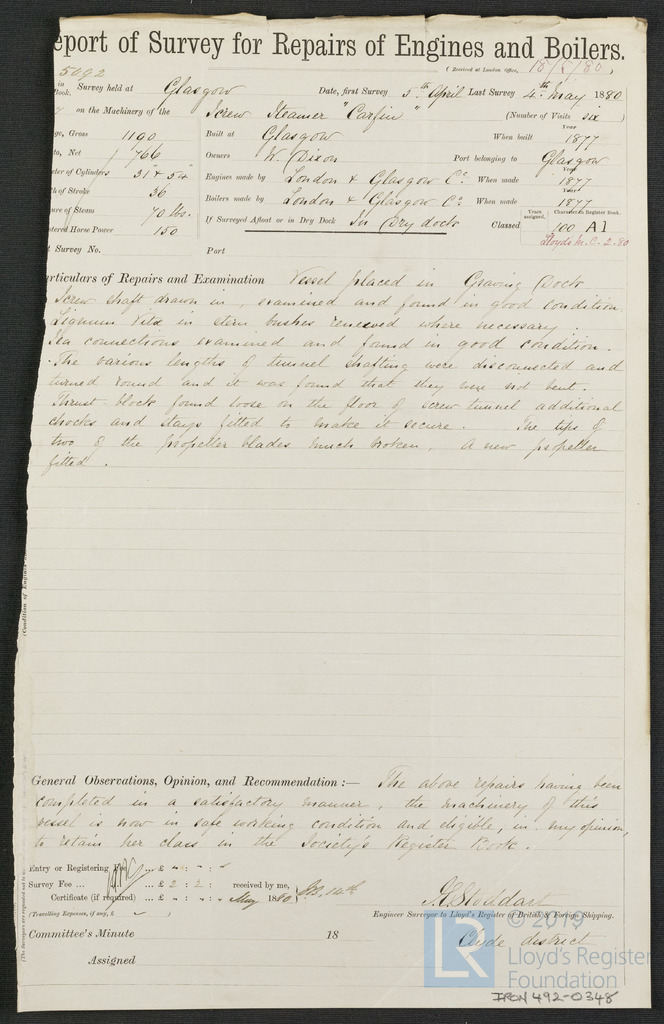 eport of Survey for Repairs of Engines and Boilers.
(Received at London Office, 18/5/80)
5092
in Book. Survey held at Glasgow Date, first Survey 5th April Last Survey 4th May 1880
on the Machinery of the Screw Steamer "Carfin" (Number of Visits six)
ge, Gross 1190 Built at Glasgow When built Year 1877
to, Net 766 Owners W. Dixon Port belonging to Glasgow
ter of Cylinders 31 + 54 Engines made by London & Glasgow Co. When made Year 1877
th of Stroke 36 Boilers made by London & Glasgow Co. When made Year 1877
ure of Steam 70 lbs. If Surveyed Afloat or in Dry Dock In Dry dock Classed Years assigned, 100 Character in Register Book. A1
tered Horse Power 150 Lloyds M.C. 2.80
t Survey No. Port
rticulars of Repairs and Examination Vessel placed in Graving Dock
Screw shaft drawn in, examined and found in good condition.
Lignum Vitæ in stern bushes renewed where necessary.
Sea connections examined and found in good condition.
The various lengths of tunnel shafting were disconnected and
turned round and it was found that they were not bent.
Thrust block found loose on the floor of screw tunnel additional
chocks and stays fitted to make it secure. The tips of
two of the propeller blades much broken. A new propeller
fitted.
General Observations, Opinion, and Recommendation :— The above repairs having been
completed in a satisfactory manner, the machinery of this
vessel is now in safe working condition and eligible, in my opinion,
to retain her class in the Society's Register Book.
Entry or Registering Fee ... £ " : " : "
Survey Fee ... ... £ 2 : 2 : received by me,
Certificate (if required) ... £ " : " : May 1880
(Travelling Expenses, if any, £ )
J. Stoddart
Engineer Surveyor to Lloyd's Register of British & Foreign Shipping.
Clyde district
Committee's Minute 18
Assigned
© 2019
LR
Lloyd's Register
Foundation
IRON 492-0348